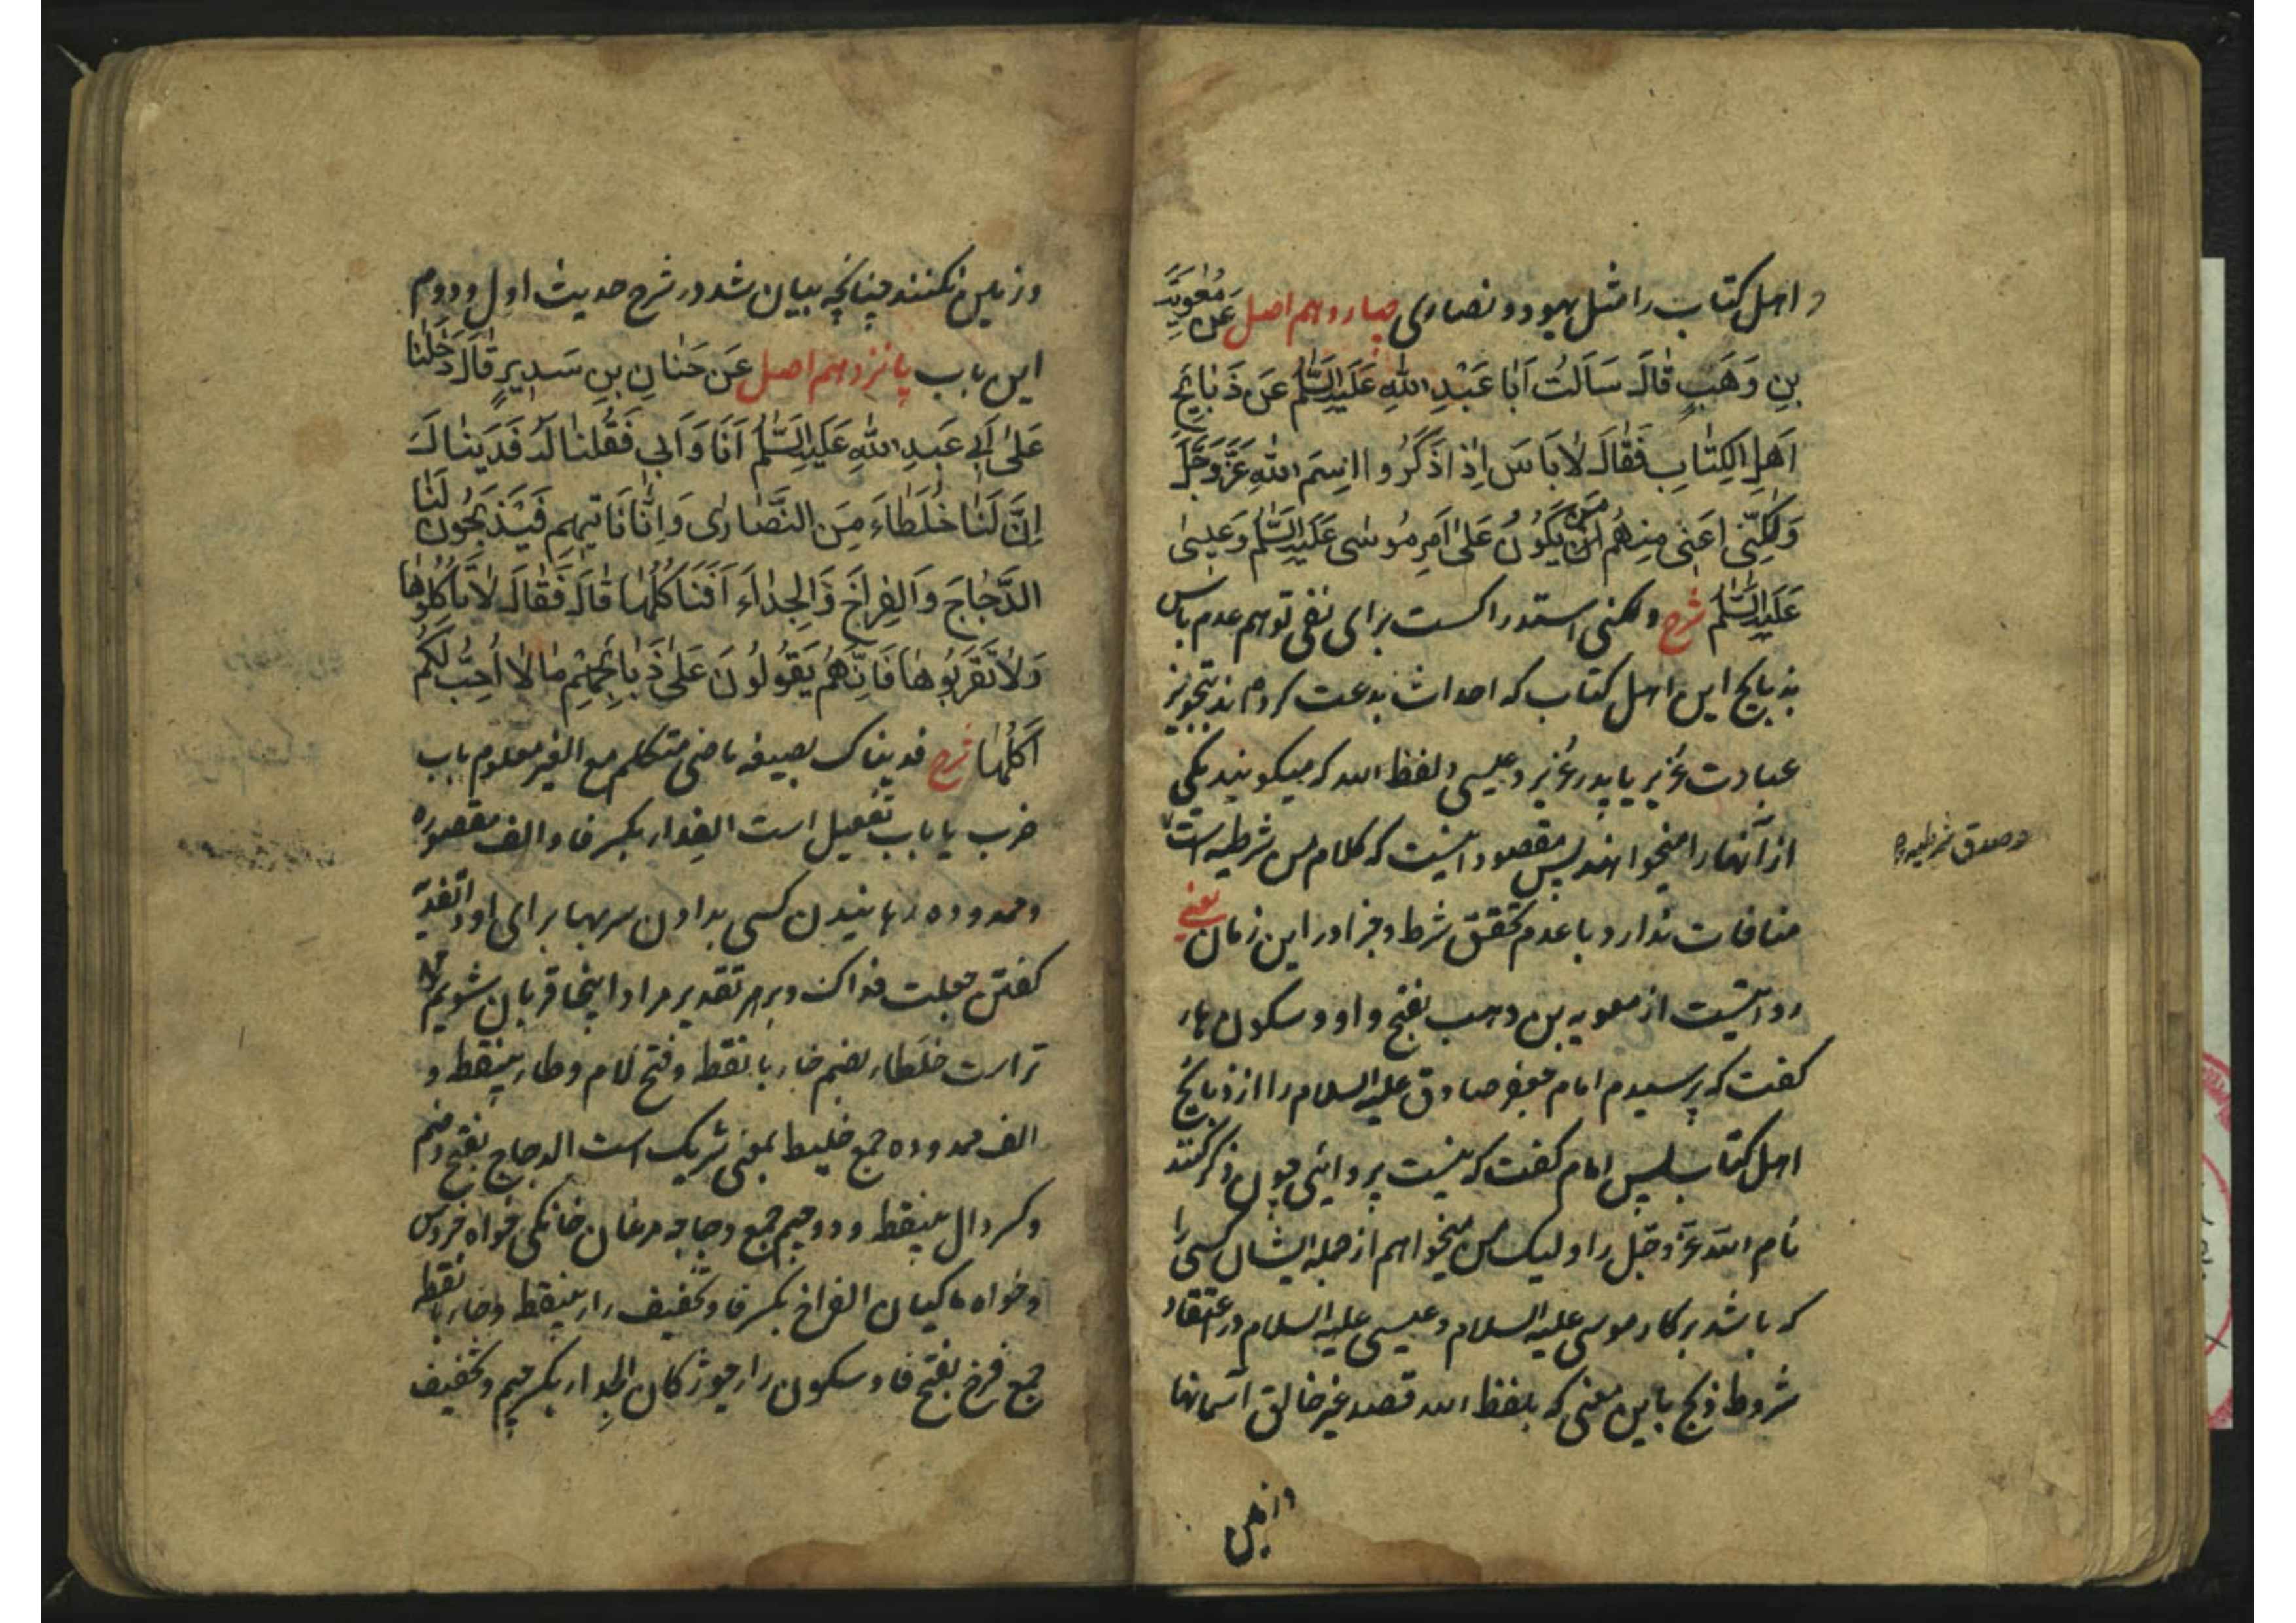 و اهل کتاب را مثل یهود و نصاری چهاردهم اصل عَن مُعٰوِیَةَ
بنِ وَهَبٍ قٰالَ سَاَلتُ اَبٰا عَبْدِ اللّٰهِ عَلَیهِ السَّلٰمُ عَن ذَبٰایِحِ
اَهلِ الکِتٰابِ فَقٰالَ لٰا بَاسَ اِذٰا ذَکَرُوا اسِمَ اللّٰهِ عَزَّ وَجَلَّ
وَلٰکِنّی اَعنی مِنهُم مَن یَکُونُ عَلیٰ اَمرِ مُوسٰی عَلَیهِ السَّلٰمُ وَعیسیٰ
عَلَیهِ السَّلٰمُ شرح ولکنی استدراکست برای نفی توهم عدم باس
بذبایح این اهل کتاب که احداث بدعت کرده‌اند بتجویز
عبادت عُزیر یا پدر عُزیر و عیسی و لفظ الله که میکویند یکی
از آنها را میخواهند پس مقصود اینست که کلام من شرطیه است
و صدق شرطیه
منافات ندارد با عدم تحقق شرط و جزا در این زمان یعنی
روایتست از معویه بن وهب بفتح واو و سکون هاء
کفت که پرسیدم امام جعفر صادق علیه السلام را از ذبایح
اهل کتاب پس امام کفت که نیست پروائی چون ذکر کنند
نام الله عزّ وجّل را و لیک من میخواهم از جمله ایشان کسی را
که باشد بر کار موسی علیه السلام و عیسی علیه السلام در اعتقاد
شروط ذبح باین معنی که بلفظ الله قصد غیر خالق آسمانها
و زمین
و زمین نکنند چنانچه بیان شد در شرح حدیث اول و دوم
این باب پانزدهم اصل عَن حَنٰانِ بنِ سَدیرٍ قٰالَ دَخَلنٰا
عَلیٰ اَبی عَبدِ اللّٰهِ عَلَیهِ السَّلٰمُ اَنَا وَاَبی فَقُلنٰا لَهُ فَدَینٰاکَ
اِنَّ لَنٰا خُلَطٰاءَ مِنَ النَّصٰاریٰ وَاِنّٰا نَاتیهِم فَیَذبَحُونَ لَنٰا
الدَّجٰاجَ وَالفِراخَ وَالجِدٰاءَ اَفَنَاکُلُهٰا قٰالَ فَقٰالَ لٰا تَاکُلُوهٰا
وَلٰا تَقرَبُوهٰا فَاِنَّهُم یَقُولُونَ عَلیٰ ذَبٰائِحِهِم مٰا لٰا اُحِبُّ لَکُم
اَکلَهٰا شرح فدیناک بصیغه ماضی متکلم مع الغیر معلوم باب
ضرب یا باب تفعیل است الفِداء بکسر فا و الف مقصوره
و ممدوده رهانیدن کسی بدادن سربها برای او و التفدیة
کفتن جعلت فداک و بر هر تقدیر مراد اینجا قربان شویم
تراست خلطاء بضم خاء با نقطه و فتح لام و طاء بینقطه و
الف ممدوده جمع خلیط بمعنی شریک است الدجاج بفتح و ضم
و کسر دال بینقطه و دو جیم جمع دجاجه مرغان خانکی خواه خروس
و خواه ماکیان الفراخ بکسر فا و تخفیف راء بینقطه و خاء با نقطه
جمع فرخ بفتح فا و سکون را جوژکان الجِداء بکسر جیم و تخفیف